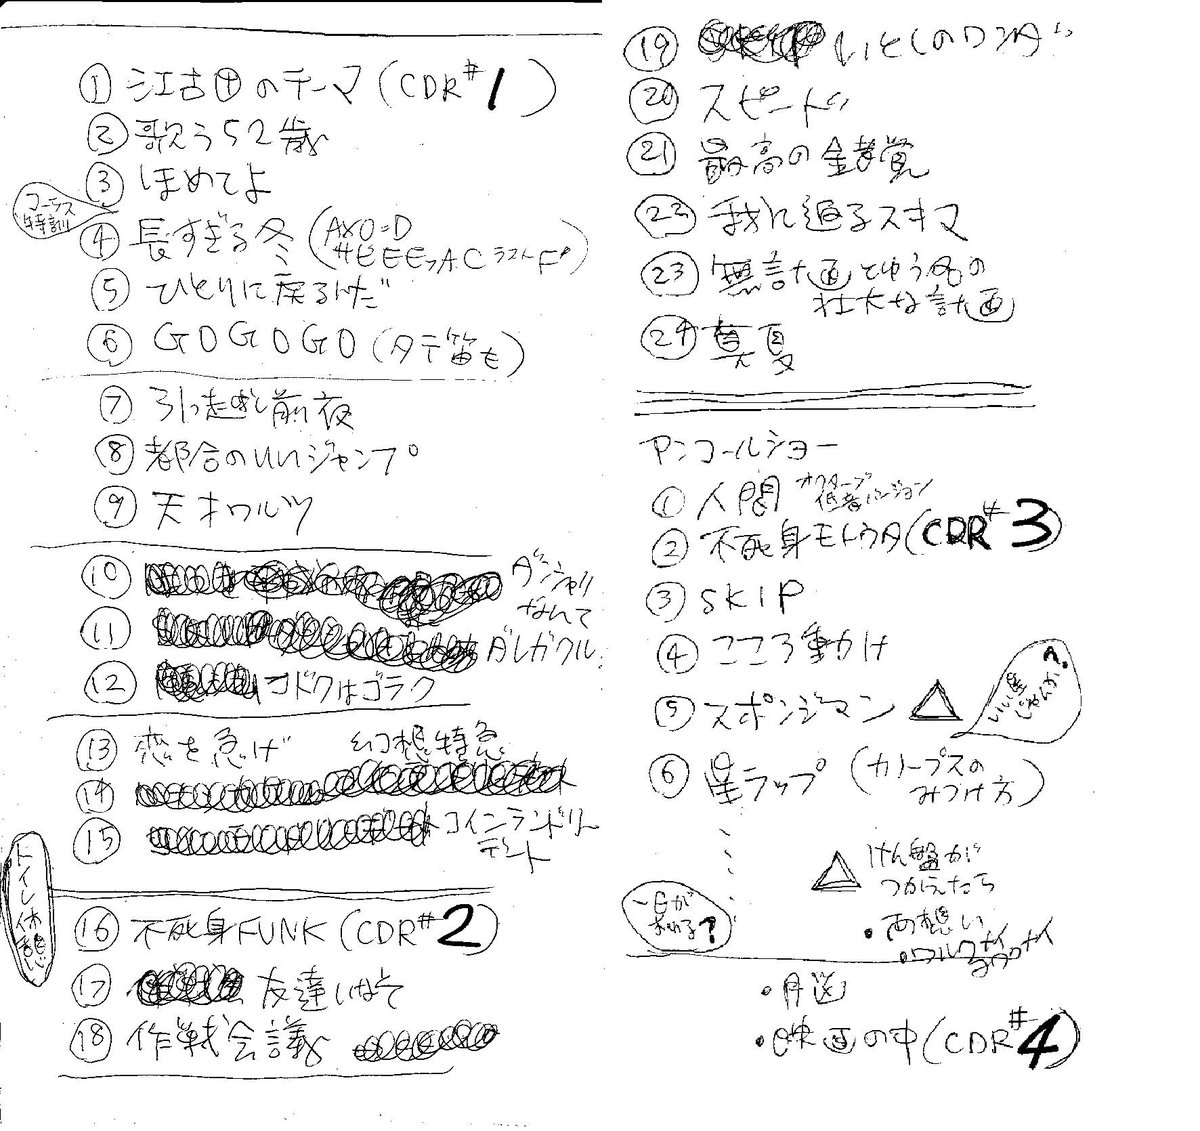 ① 江古田のテーマ (CDR#1)
② 歌う52歳
③ ほめてよ
コーラス
特訓
④ 長すぎる冬 (
ラスト
⑤ ひとりに戻るんだ
⑥ GOGOGO (タテ笛も)
⑦ 引っ越し前夜
⑧ 都合のいいジャンプ
⑨ 天才ワルツ
⑩ ダンシャリ
なんて
⑪ ダレガクル
⑫ コドクはゴラク
⑬ 恋を急げ 幻想特急
⑭
⑮ コインランドリー
デート
トイレ休憩い
⑯ 不死身FUNK (CDR#2)
⑰ 友達いなくて
⑱ 作戦会議
⑲ いとしのワンダ
⑳ スピード
㉑ 最高の錯覚
㉒ 我に返るスキマ
㉓ 無計画とゆう名の
壮大な計画
㉔ 真夏
アンコールショー
① 人間 オクターブ
低音バージョン
② 不死身モトウタ (CDR#3)
③ SKIP
④ こころ動かけ
⑤ スポンジマン
いい星
じゃんか。
⑥ 星ラップ (カノープスの
みつけ方)
けん盤が
つかえたら
・ワルクナイ
・月送
・映画の中 (CDR#4)